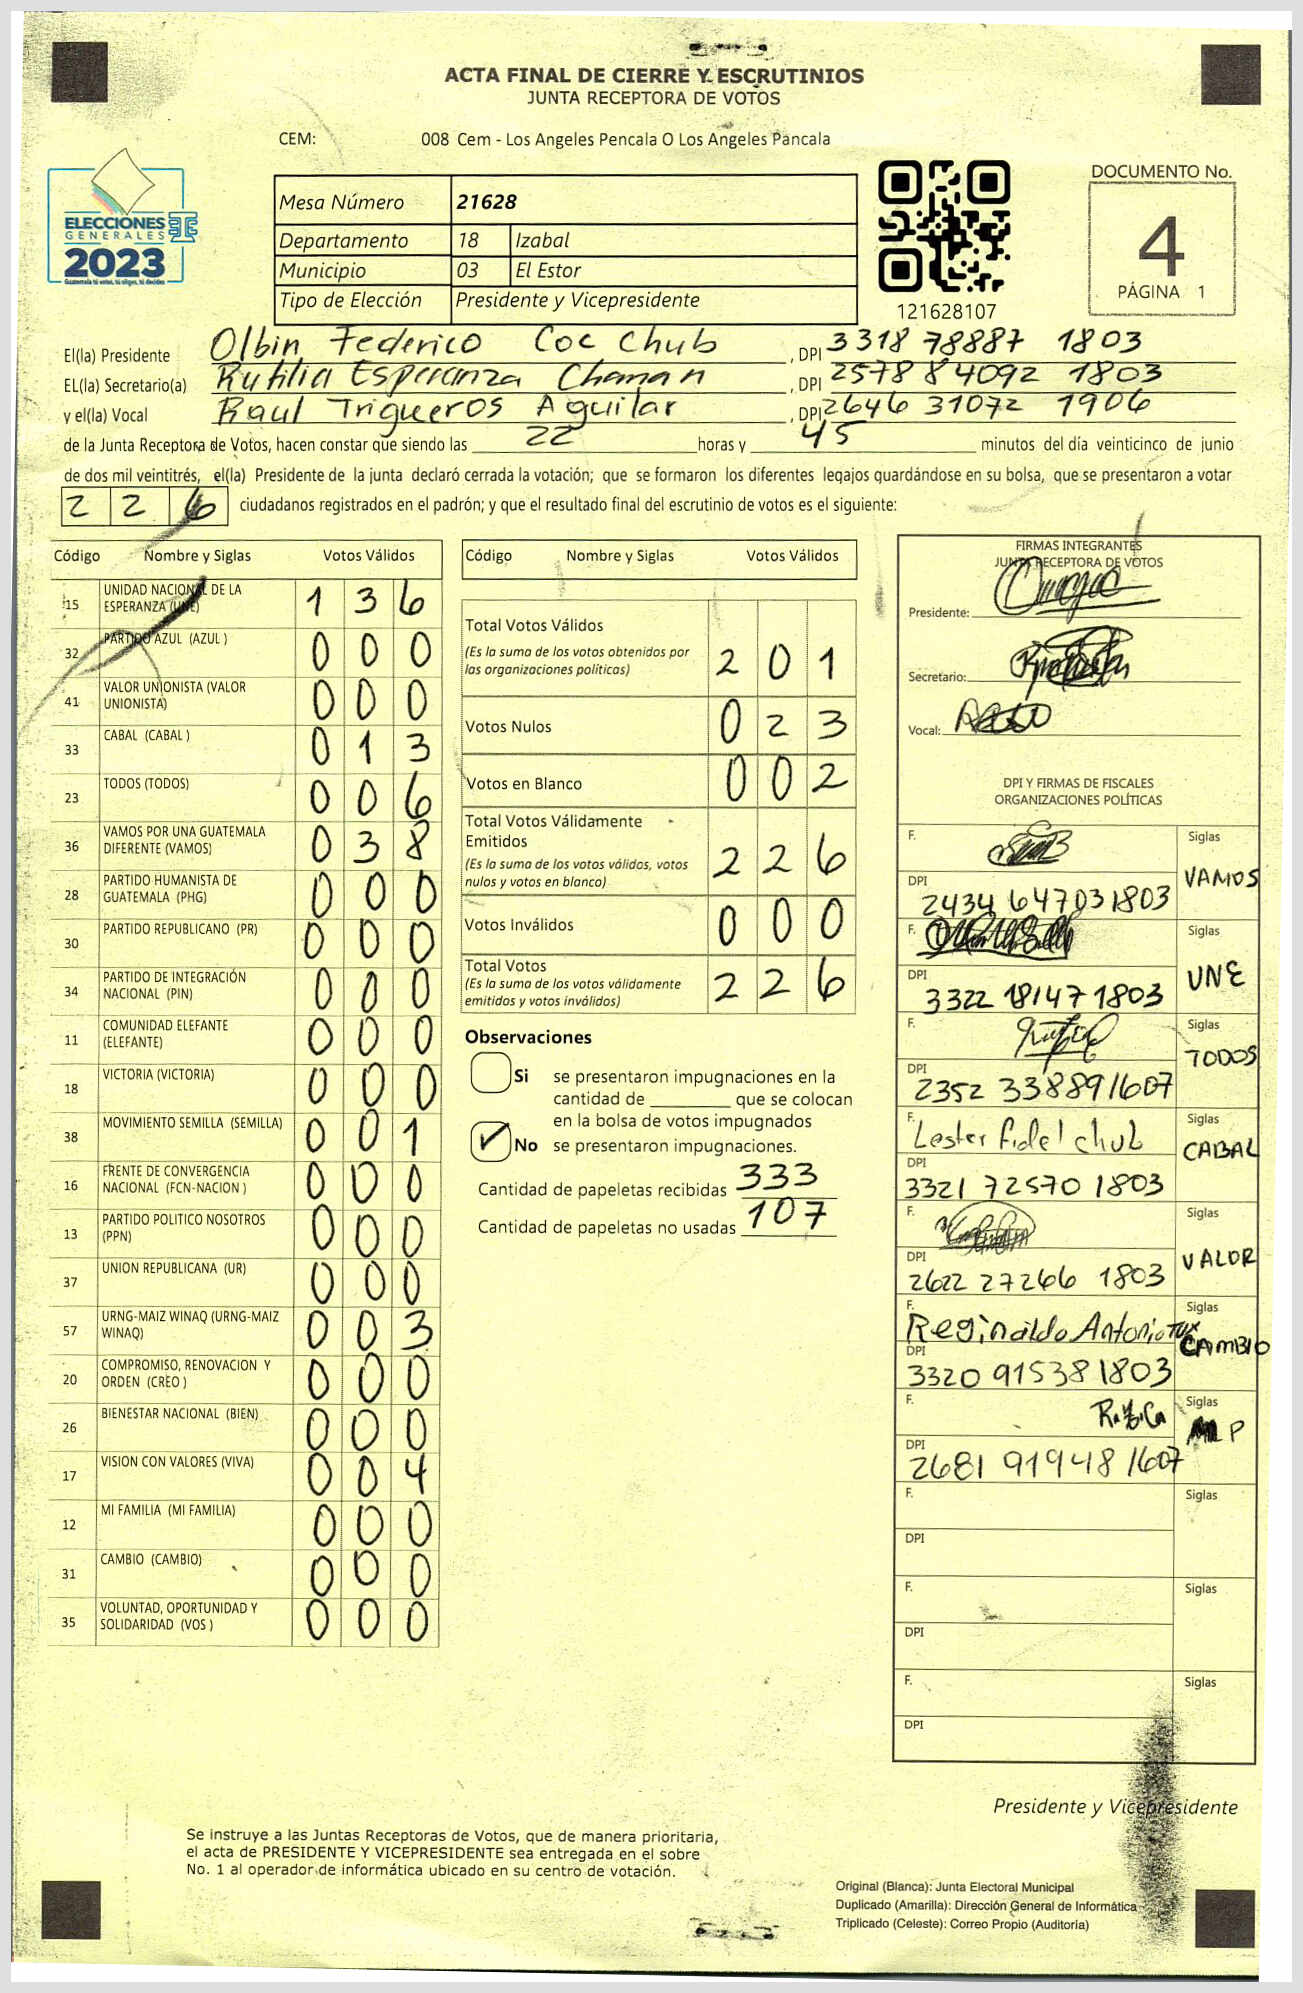 ACTA FINAL DE CIERRE Y ESCRUTINIOS
JUNTA RECEPTORA DE VOTOS
CEM: 008 Cem - Los Angeles Pencala O Los Angeles Pancala
ELECCIONES
GENERALES
2023
Guatemala tú votas, tú eliges, tú decides
Mesa Número 21628
Departamento 18 Izabal
Municipio 03 El Estor
Tipo de Elección Presidente y Vicepresidente
121628107
DOCUMENTO No.
4
PÁGINA 1
El(la) Presidente Olbin Federico Coc Chub, DPI 3318 78887 1803
EL(la) Secretario(a) Rutilia Esperanza Chaman, DPI 2578 84092 1803
y el(la) Vocal Raul Trigueros Aguilar, DPI 2646 31072 1906
de la Junta Receptora de Votos, hacen constar que siendo las 22 horas y 45 minutos del día veinticinco de junio
de dos mil veintitrés, el(la) Presidente de la junta declaró cerrada la votación; que se formaron los diferentes legajos guardándose en su bolsa, que se presentaron a votar
226 ciudadanos registrados en el padrón; y que el resultado final del escrutinio de votos es el siguiente:
Código Nombre y Siglas Votos Válidos
15 UNIDAD NACIONAL DE LA ESPERANZA (UNE) 1 3 6
32 PARTIDO AZUL (AZUL ) 0 0 0
41 VALOR UNIONISTA (VALOR UNIONISTA) 0 0 0
33 CABAL (CABAL ) 0 1 3
23 TODOS (TODOS) 0 0 6
36 VAMOS POR UNA GUATEMALA DIFERENTE (VAMOS) 0 3 8
28 PARTIDO HUMANISTA DE GUATEMALA (PHG) 0 0 0
30 PARTIDO REPUBLICANO (PR) 0 0 0
34 PARTIDO DE INTEGRACIÓN NACIONAL (PIN) 0 0 0
11 COMUNIDAD ELEFANTE (ELEFANTE) 0 0 0
18 VICTORIA (VICTORIA) 0 0 0
38 MOVIMIENTO SEMILLA (SEMILLA) 0 0 1
16 FRENTE DE CONVERGENCIA NACIONAL (FCN-NACION ) 0 0 0
13 PARTIDO POLITICO NOSOTROS (PPN) 0 0 0
37 UNION REPUBLICANA (UR) 0 0 0
57 URNG-MAIZ WINAQ (URNG-MAIZ WINAQ) 0 0 3
20 COMPROMISO, RENOVACION Y ORDEN (CREO ) 0 0 0
26 BIENESTAR NACIONAL (BIEN) 0 0 0
17 VISION CON VALORES (VIVA) 0 0 4
12 MI FAMILIA (MI FAMILIA) 0 0 0
31 CAMBIO (CAMBIO) 0 0 0
35 VOLUNTAD, OPORTUNIDAD Y SOLIDARIDAD (VOS ) 0 0 0
Código Nombre y Siglas Votos Válidos
Total Votos Válidos 2 0 1
(Es la suma de los votos obtenidos por
las organizaciones políticas)
Votos Nulos 0 2 3
Votos en Blanco 0 0 2
Total Votos Válidamente
Emitidos 2 2 6
(Es la suma de los votos válidos, votos
nulos y votos en blanco)
Votos Inválidos 0 0 0
Total Votos 2 2 6
(Es la suma de los votos válidamente
emitidos y votos inválidos)
Observaciones
Si se presentaron impugnaciones en la
cantidad de ________ que se colocan
en la bolsa de votos impugnados
No se presentaron impugnaciones.
Cantidad de papeletas recibidas 333
Cantidad de papeletas no usadas 107
FIRMAS INTEGRANTES
JUNTA RECEPTORA DE VOTOS
Presidente:
Secretario:
Vocal:
DPI Y FIRMAS DE FISCALES
ORGANIZACIONES POLÍTICAS
F. Siglas VAMOS
DPI 2434 64703 1803
F. Siglas UNE
DPI 3322 18147 1803
F. Siglas TODOS
DPI 2352 33889 1607
F. Lester fidel chub Siglas CABAL
DPI 3321 72570 1803
F. Siglas VALOR
DPI 2622 27266 1803
F. Reginaldo Antonio Tux Siglas CAMBIO
DPI 3320 91538 1803
F. Siglas MLP
DPI 2681 91948 1607
F. Siglas
DPI
F. Siglas
DPI
F. Siglas
DPI
Presidente y Vicepresidente
Se instruye a las Juntas Receptoras de Votos, que de manera prioritaria,
el acta de PRESIDENTE Y VICEPRESIDENTE sea entregada en el sobre
No. 1 al operador de informática ubicado en su centro de votación.
Original (Blanca): Junta Electoral Municipal
Duplicado (Amarilla): Dirección General de Informática
Triplicado (Celeste): Correo Propio (Auditoría)